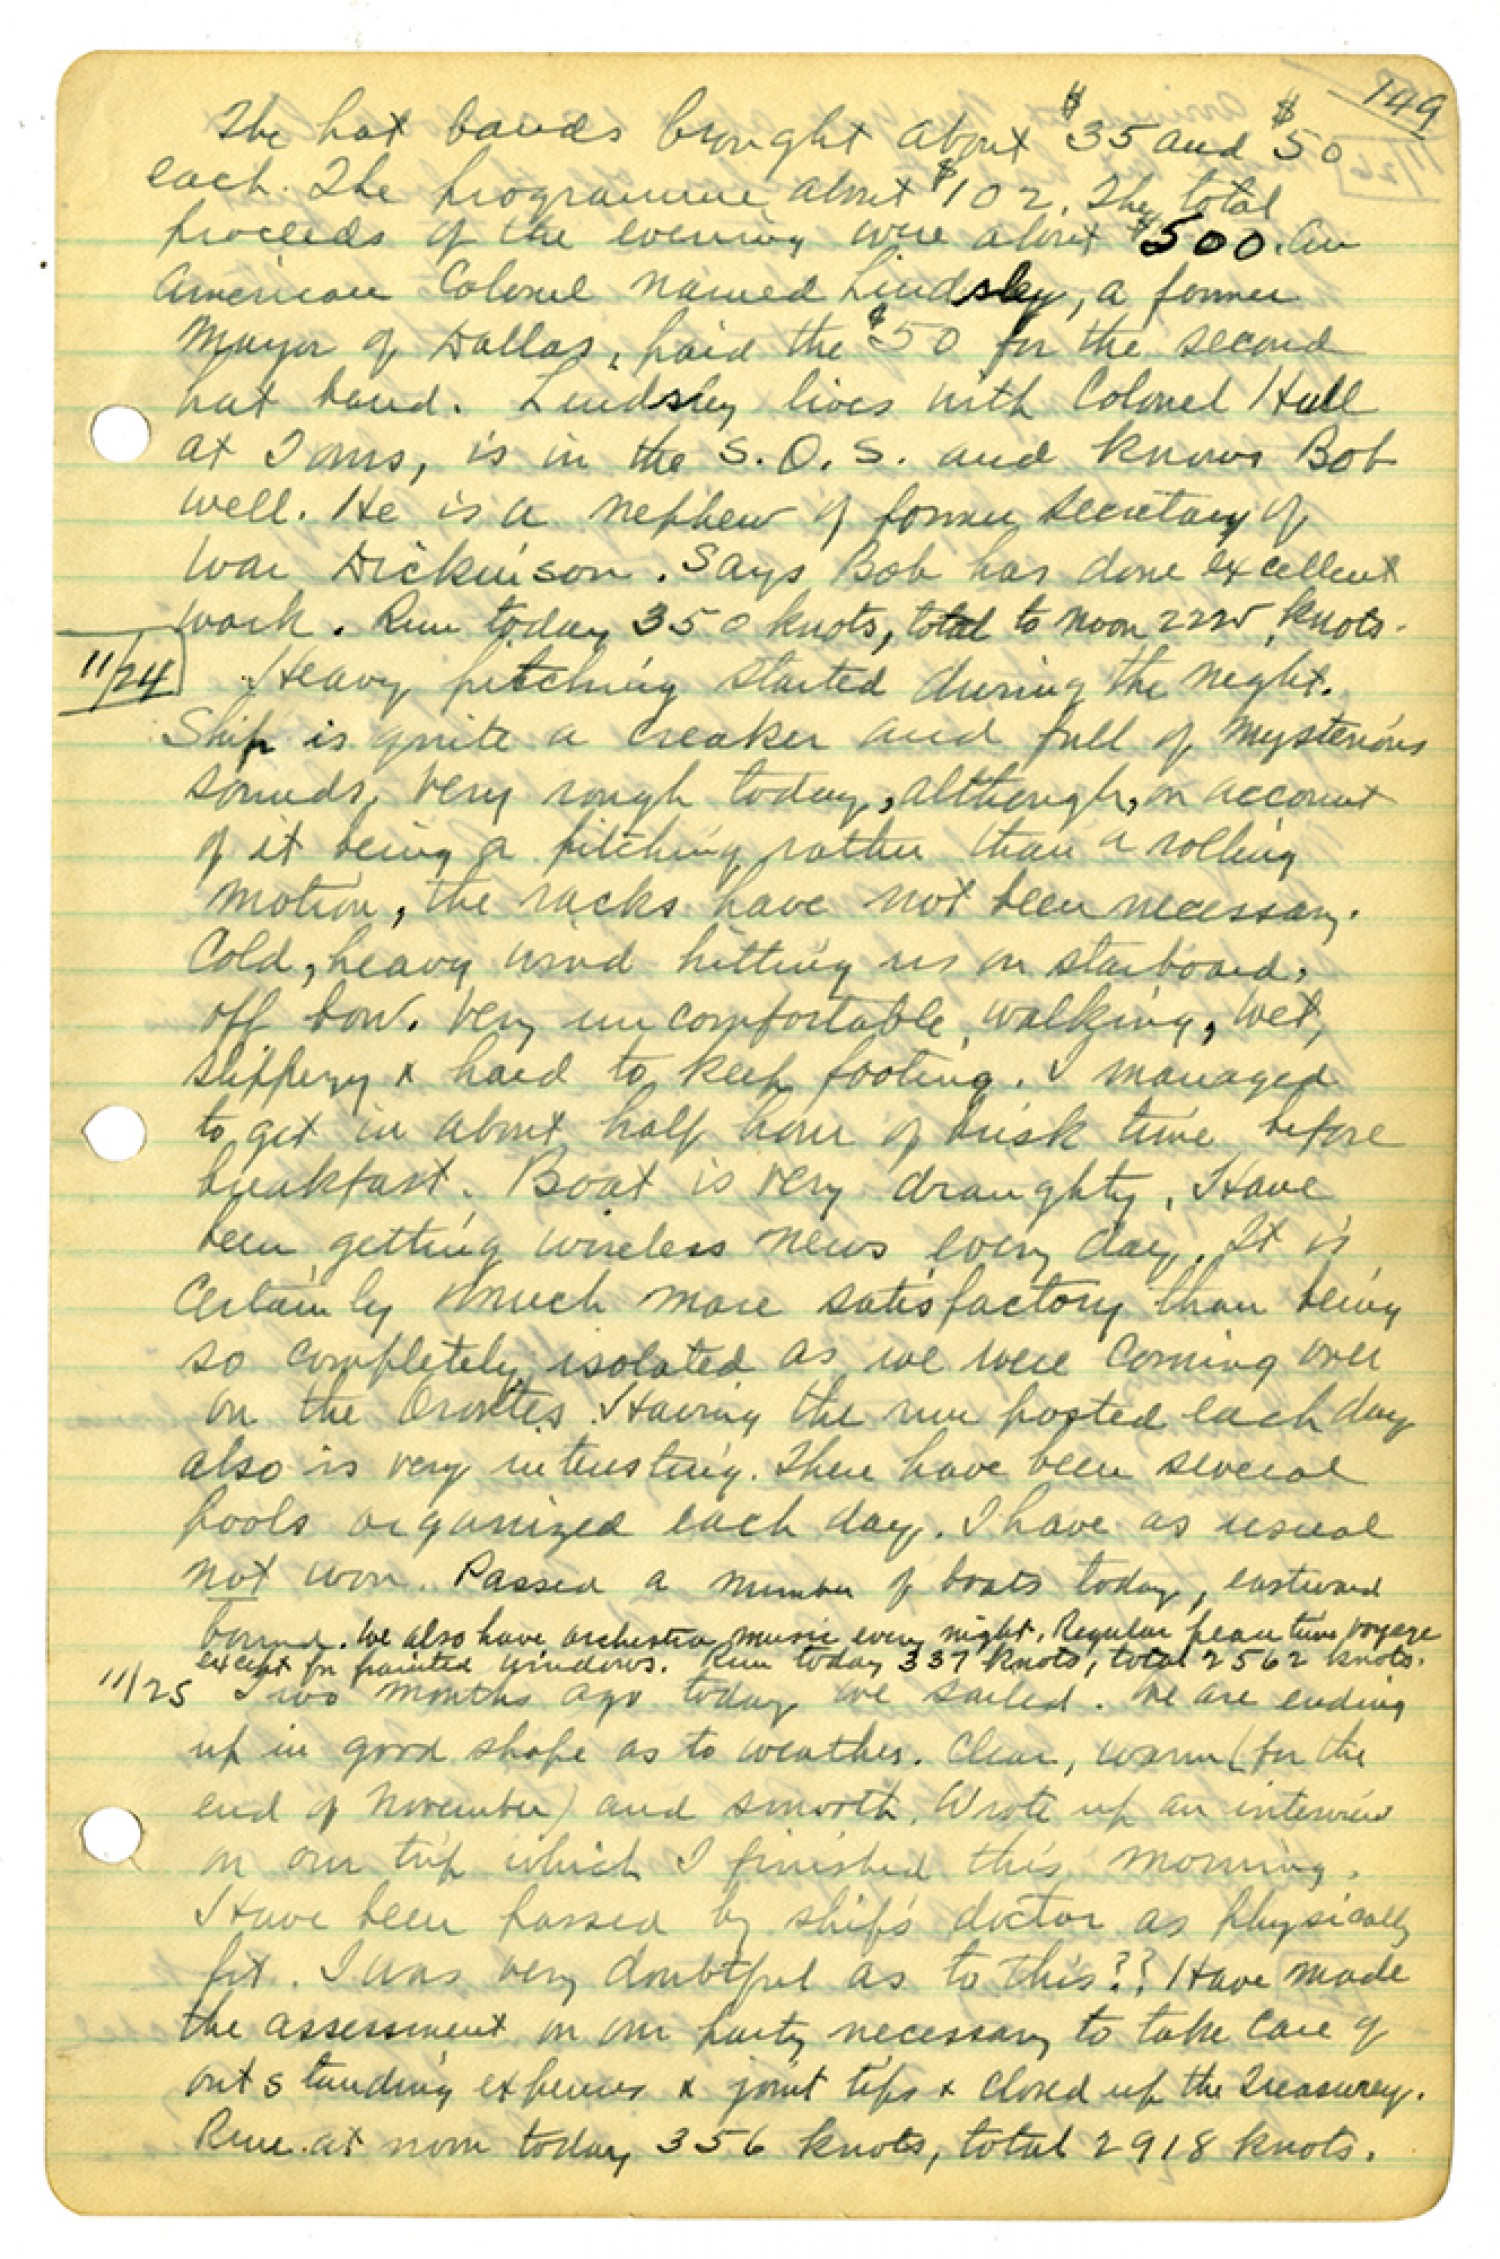 149
The hat bands brought about $35 and $50
each. The programme about $102. The total
proceeds of the evening were about $500. An
American Colonel named Lindsley, a former
Mayor of Dallas, paid the $50 for the second
hat band. Lindsley lives with Colonel Hull
at Tours, is in the S.O.S. and knows Bob
well. He is a nephew of former Secretary of
War Dickinson. Says Bob has done excellent
work. Run today 350 knots, total to noon 2225 knots.
11/24 Heavy pitching started during the night.
Ship is quite a creaker and full of mysterious
sounds. Very rough today, although, on account
of it being a pitching rather than a rolling
motion, the racks have not been necessary.
Cold, heavy wind hitting us on starboard,
off bow. Very uncomfortable walking, wet,
slippery & hard to keep footing. I managed
to get in about half hour of brisk time before
breakfast. Boat is very draughty. Have
been getting wireless news every day. It is
certainly much more satisfactory than being
so completely isolated as we were coming over
on the Orontes. Having the run posted each day
also is very interesting. There have been several
pools organized each day. I have as usual
not won. Passed a number of boats today, eastward
bound. We also have orchestra music every night. Regular peace time voyage
except for painted windows. Run today 337 knots, total 2562 knots.
11/25 Two months ago today we sailed. We are ending
up in good shape as to weather. Clear, warm (for the
end of November) and smooth. Wrote up an interview
on our trip which I finished this morning.
Have been passed by ship's doctor as physically
fit. I was very doubtful as to this?? Have made
the assessment on our party necessary to take care of
outstanding expenses & joint tips & closed up the Treasurey.
Run at noon today 356 knots, total 2918 knots.